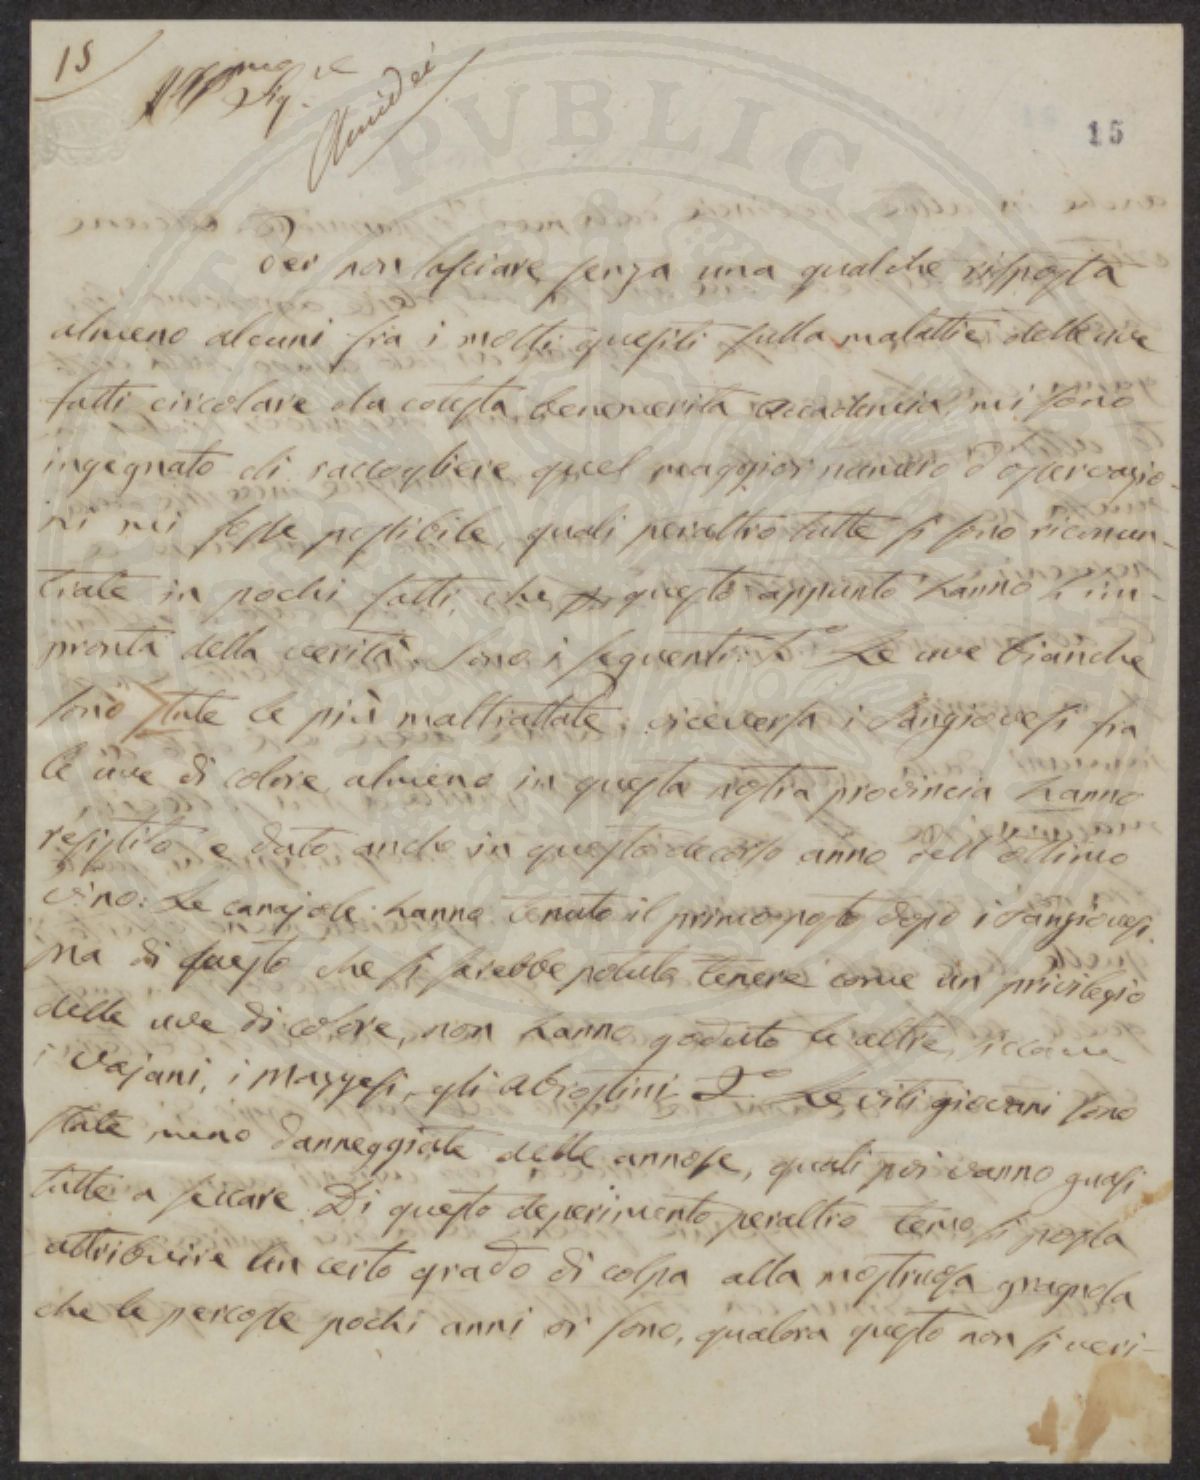 15
Sig.
Amidei
15
PVBLICA
Per non lasciare senza una qualche risposta
almeno alcuni fra i molti quesiti sulla malattia delle uve
fatti circolare da cotesta benemerita accademia, mi sono
ingegnato di raccogliere quel maggior numero d'osservazio-
ni mi fosse possibile, quali peraltro tutte si sono riconcen-
trate in pochi fatti, che questo appunto hanno l'im-
pronta della verità. Sono i seguenti: 1.o Le uve bianche
sono state le più maltrattate, viceversa i Sangiovesi fra
le uve di colore, almeno in questa nostra provincia hanno
resistito e dato anche in questo decorso anno dell'ottimo
vino: Le canajole hanno tenuto il primo posto dopo i Sangiovesi.
Ma di questo che si sarebbe potuto tenere come un privilegio
delle uve di colore, non hanno goduto le altre, siccome
i Vajani, i Mazzesi, gli Abrostini. 2.o Le viti giovani sono
state meno danneggiate delle annose, quali poi vanno quasi
tutte a seccare. Di questo deperimento peraltro temo si possa
attribuire un certo grado di colpa alla mostruosa gragnola
che le percosse pochi anni or sono, qualora questo non si veri-